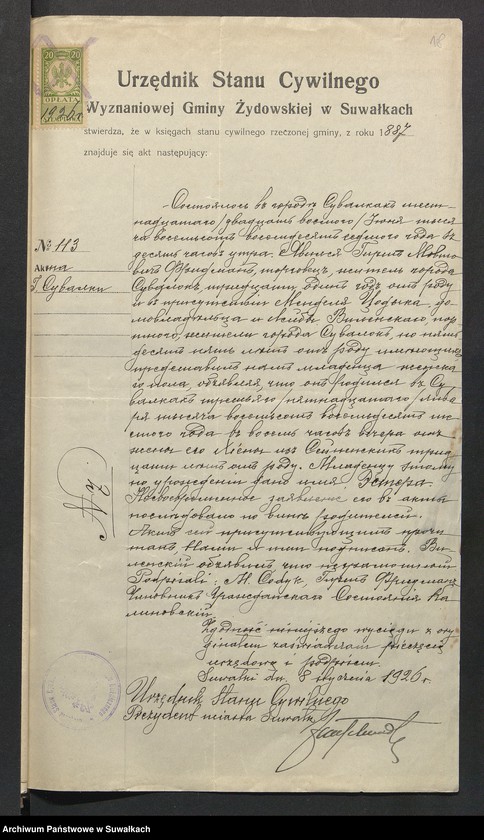 18
20 20
OPŁATA
1926
Urzędnik Stanu Cywilnego
Wyznaniowej Gminy Żydowskiej w Suwałkach
stwierdza, że w księgach stanu cywilnego rzeczonej gminy, z roku 1887
znajduje się akt następujący:
№ 113
Akt
г. Сувалки
Состоялось въ городѣ Сувалкахъ шест-
надцатаго /двадцать восьмого/ Іюня тыся-
ча восемьсотъ восемьдесятъ седьмого года въ
десять часовъ утра. Явился Гиршъ
торговецъ, житель города
Сувалокъ, тридцати одинъ годъ отъ роду
и въ присутствіи Менделя до-
мовладѣльца и Лейбы Виленскаго пор-
тного, жители города Сувалокъ, по пять-
десятъ пять лѣтъ отъ роду имѣющихъ
представилъ намъ младенца женска-
го пола, объявляя, что онъ родился въ Су-
валкахъ третьяго /пятнадцатаго/ Янва-
ря тысяча восемьсотъ восемьдесятъ ше-
стого года въ восемь часовъ вечера отъ
жены его изъ трид-
цати лѣтъ отъ роду. Младенцу этому
по учрежденію дано имя Эстера.
заявленіе сіе въ актъ
послѣдовало по винѣ родителей.
Актъ сей присутствующимъ прочи-
танъ Нами и ими подписанъ. Ви-
ленскій объявилъ что неграмотный
Podpisali: M. Гиршъ
Чиновникъ Гражданскаго Состоянія Ка-
линовскій
Zgodność niniejszego wyciągu z ory-
ginałem zaświadczam pieczęcią
urzędową i podpisem.
Suwałki dn. 8 stycznia 1926 r.
Urzędnik Stanu Cywilnego
Prezydent miasta Suwałk
Archiwum Państwowe w Suwałkach